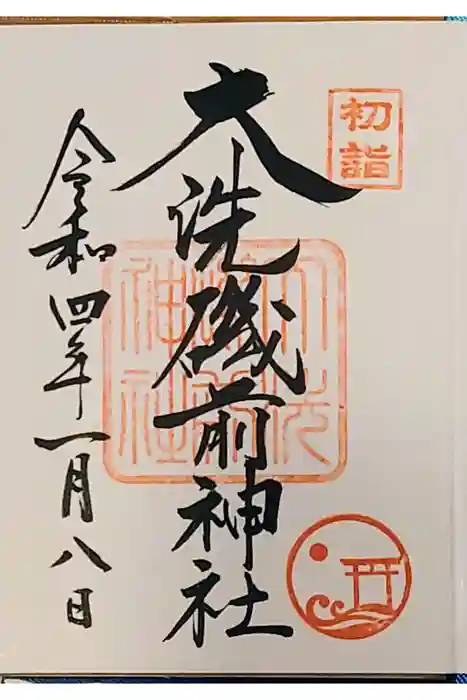 初詣
大洗磯前神社
大洗磯前神社
令和四年一月八日